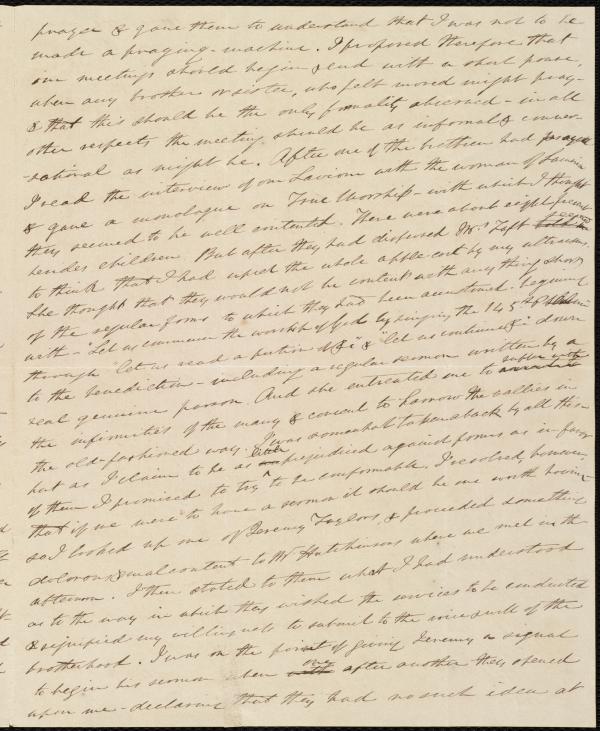 prayer & gave them to understand that I was not to be
made a praying-machine. I proposed therefore that
our meetings should begin & end with a short pause,
when any brother or sister, who felt moved might pray -
& that this should be the only formality observed - in all
other respects the meeting should be as informal & conver-
-sational as might be. After one of the brethren had prayed
I read the interview of our Saviour with the woman of Samaria
& gave a monologue on True Worship - with which I thought
they seemed to be well contented. There were about eight present
besides children. But after they had dispersed Mrs Taft seemed
to think that I had upset the whole apple-cart by my ultraism.
She thought that they would not be content with any thing short
of the regular forms to which they had been accustomed - beginning
with - "Let us commence the worship of God by singing the 145th Psalm"
through "let us read a portion of &c" & "let us continue &c" down
to the benediction - including a regular sermon written by a
real genuine parson. And she entreated me to suffer with
the infirmities of the many & consent to harrow the vallies in
the old-fashioned way. I was somewhat taken aback by all this -
but as I claim to be as little prejudiced against forms as in favor
of them I promised to try to be conformable. I resolved, however,
that if we were to have a sermon it should be one worth having -
so I looked up one of Jeremy Taylor's & proceeded something
dolorous & malcontent to Mr Hutchinsons where we met in the
afternoon. I then stated to them what I had understood
as to the way in which they wished the services to be conducted
& signified my willingness to submit to the voice & will of the
brotherhood. I was on the point of giving Jeremy a signal
to begin his sermon when one after another they opened
upon me - declaring that they had no such idea at